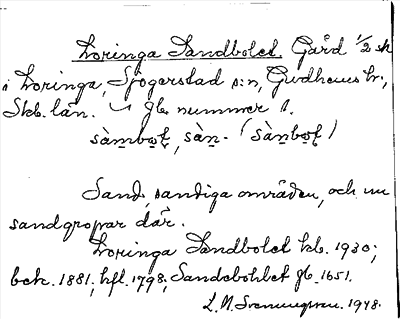 Loringa Sandbolet. Gård 1/2 sk
i Loringa, Sjogerstad s:n, Gudhems hr,
Skb. län. gb. nummer 1.
sàmbo̱ţ, sàn- (sànbo̱ţ)
Sand, sandiga områden, och nu
sandgropar där.
Loringa Sandbolet kb. 1930;
bek. 1881; hfl. 1798; Sandebohlet gb. 1651.
L. M. Svenungsson. 1948.